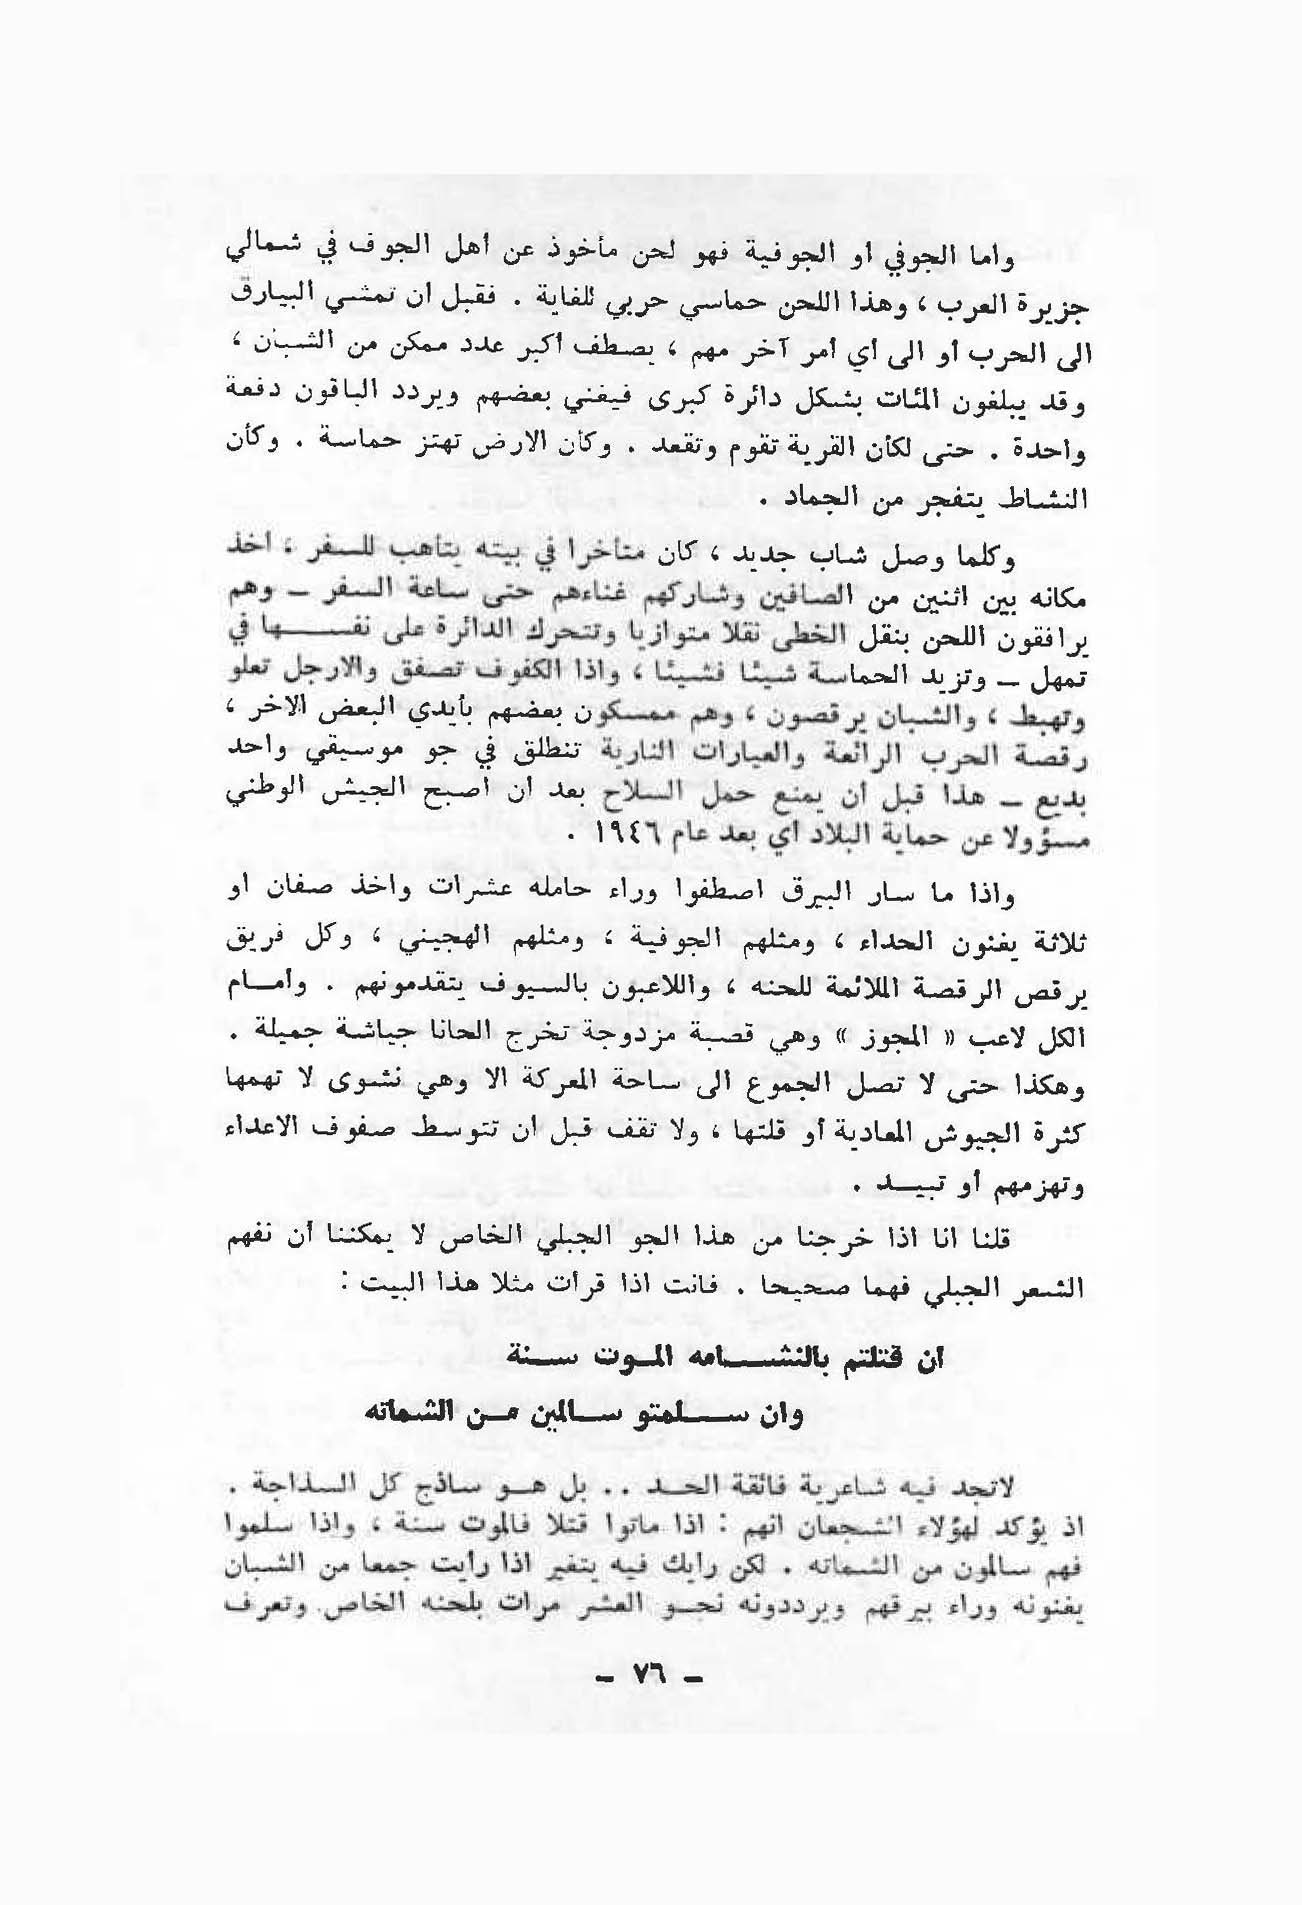 واما الجوفي او الجوفية فهو لحن مأخوذ عن اهل الجوف في شمالي
جزيرة العرب ، وهذا اللحن حماسي حربي للغاية . فقبل ان تمشي البيارق
الى الحرب أو الى أي أمر آخر مهم ، يصطف أكبر عدد ممكن من الشبان ،
وقد يبلغون المئات بشكل دائرة كبرى فيغني بعضهم ويردد الباقون دفعة
واحدة . حتى لكأن القرية تقوم وتقعد . وكأن الارض تهتز حماسة . وكأن
النشاط يتفجر من الجماد .
وكلما وصل شاب جديد ، كان متأخرا في بيته يتأهب للسفر ، اخذ
مكانه بين اثنين من الصافين وشاركهم غناءهم حتى ساعة السفر – وهم
يرافقون اللحن بنقل الخطى نقلا متوازيا وتتحرك الدائرة على نفسها في
تمهل – وتزيد الحماسة شيئا فشيئا ، واذا الكفوف تصفق والارجل تعلو
وتهبط ، والشبان يرقصون ، وهم ممسكون بعضهم بأيدي البعض الاخر ،
رقصة الحرب الرائعة والعيارات النارية تنطلق في جو موسيقي واحد
بديع – هذا قبل ان يمنع حمل السلاح بعد ان اصبح الجيش الوطني
مسؤولا عن حماية البلاد اي بعد عام ١٩٤٦ .
واذا ما سار البيرق اصطفوا وراء حامله عشرات واخذ صفان او
ثلاثة يغنون الحداء ، ومثلهم الجوفية ، ومثلهم الهجيني ، وكل فريق
يرقص الرقصة الملائمة للحنه ، واللاعبون بالسيوف يتقدمونهم . وامام
الكل لاعب « المجوز » وهي قصبة مزدوجة تخرج الحانا جياشة جميلة .
وهكذا حتى لا تصل الجموع الى ساحة المعركة الا وهي نشوى لا تهمها
كثرة الجيوش المعادية أو قلتها ، ولا تقف قبل ان تتوسط صفوف الاعداء
وتهزمهم أو تبيد .
قلنا انا اذا خرجنا من هذا الجو الجبلي الخاص لا يمكننا أن نفهم
الشعر الجبلي فهما صحيحا . فانت اذا قرأت مثلا هذا البيت :
ان قتلتم بالنشامه الموت سنة
وان سلمتو سالمين من الشماته
لاتجد فيه شاعرية فائقة الحد .. بل هو ساذج كل السذاجة .
اذ يؤكد لهؤلاء الشجعان انهم : اذا ماتوا قتلا فالموت سنة ، واذا سلموا
فهم سالمون من الشماته . لكن رايك فيه يتغير اذا رأيت جمعا من الشبان
يغنونه وراء بيرقهم ويرددونه نحو العشر مرات بلحنه الخاص وتعرف
– ٧٦ –